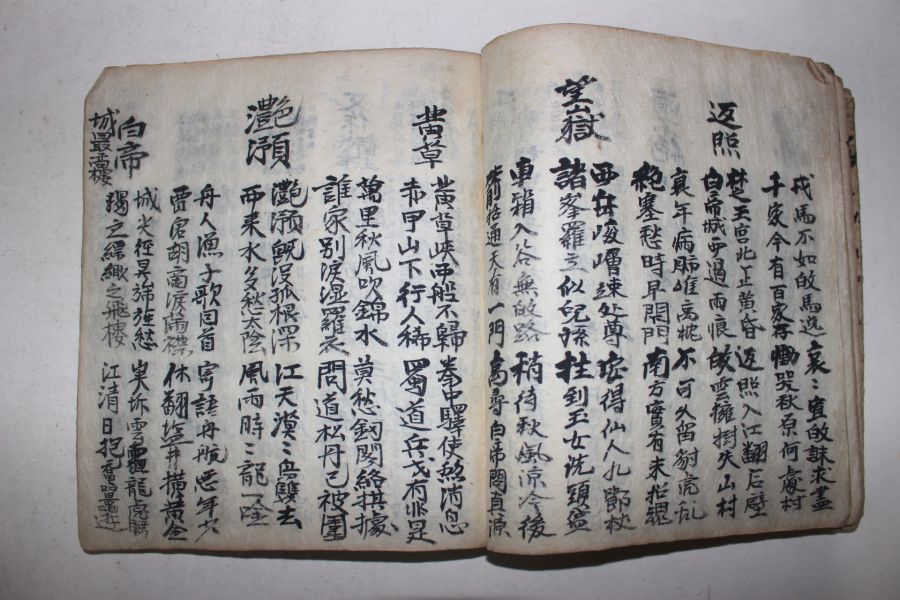 戎馬不如歸馬逸 哀〻寡婦誅求盡
千家今有百家存 慟哭秋原何處村
返照
楚王宮北正黃昏 返照入江翻石壁
白帝城西過雨痕 歸雲擁樹失山村
衰年病肺惟高枕 不可久留豺虎亂
絕塞愁時早閉門 南方實有未招魂
望嶽
西岳崚嶒竦處尊 安得仙人九節杖
諸峯羅立似兒孫 拄到玉女洗頭盆
車箱入谷無歸路 稍待秋風涼冷後
箭栝通天有一門 高尋白帝問真源
黃草
黃草峽西船不歸 秦中驛使無消息
赤甲山下行人稀 蜀道兵戈有非是
萬里秋風吹錦水 莫愁劍閣終堪據
誰家別淚濕羅衣 聞道松州已被圍
灩澦
灩澦既沒孤根深 江天漠〻鳥雙去
西來水多愁太陰 風雨時〻龍一吟
舟人漁子歌回首 寄語舟航惡年少
賈客胡商淚滿襟 休翻鹽井橫黃金
白帝
城最高樓
城尖徑昃旌旆愁 峽坼雲霾龍虎睡
獨立縹緲之飛樓 江清日抱黿鼉遊